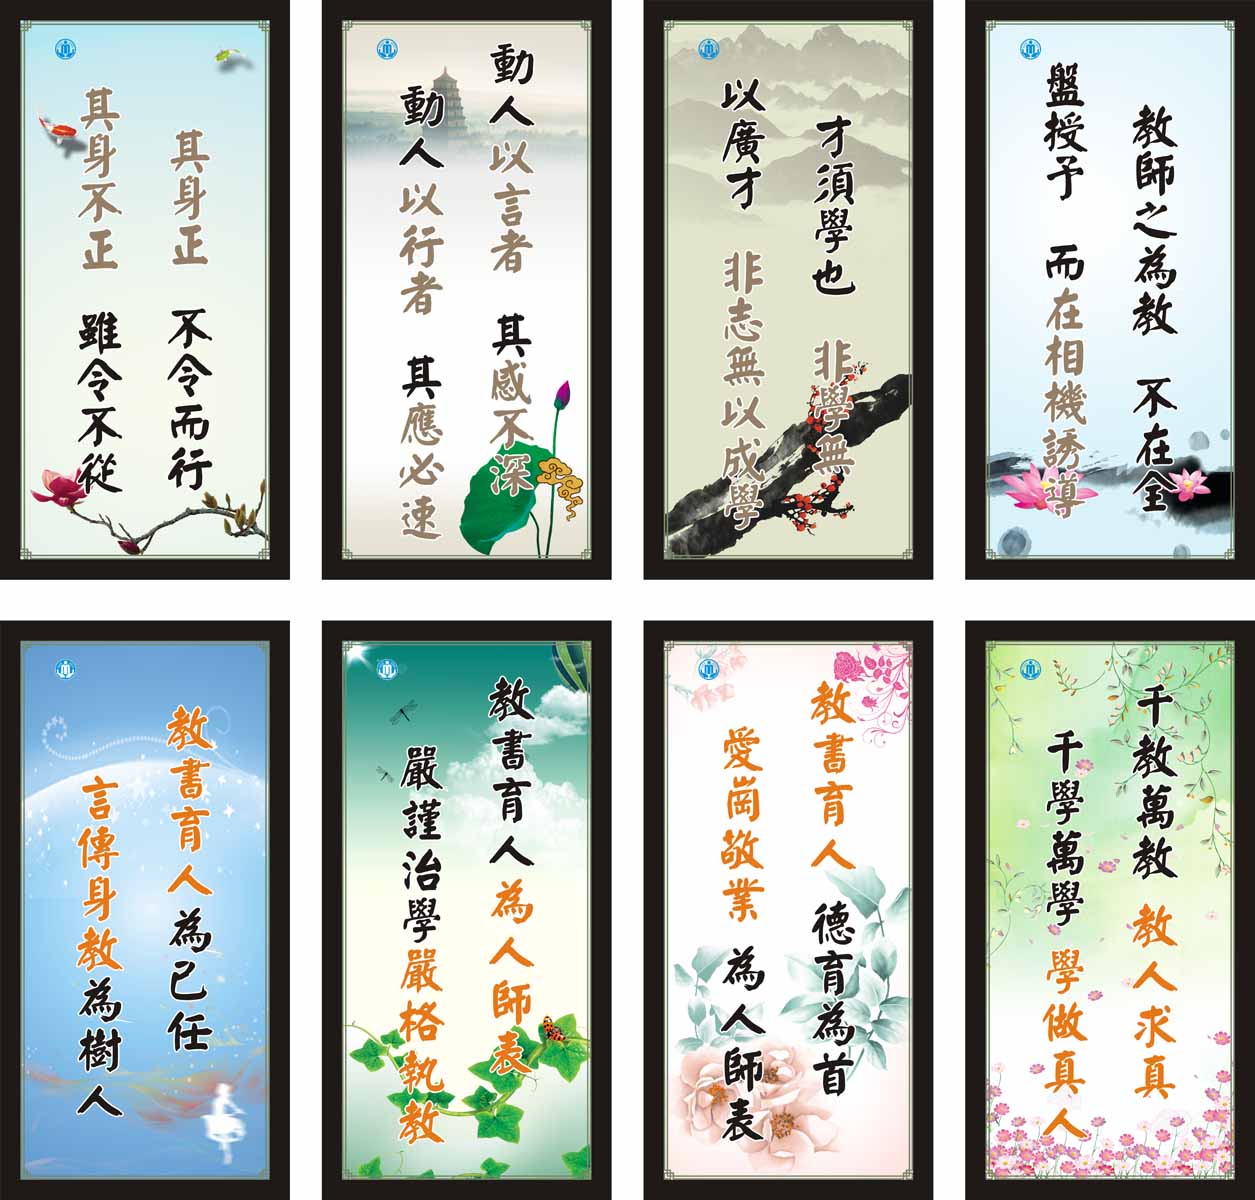 其身正 不令而行
其身不正 雖令不從
動人以言者 其感不深
動人以行者 其應必速
才須學也 非學無
以廣才 非志無以成學
教師之為教 不在全
盤授予 而在相機誘導
教書育人為已任
言傳身教為樹人
教書育人為人師表
嚴謹治學嚴格執教
教書育人 德育為首
愛崗敬業 為人師表
千教萬教 教人求真
千學萬學 學做真人